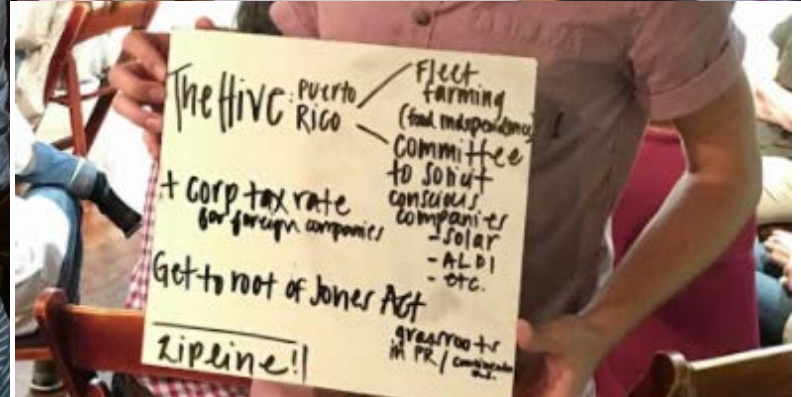 The Hive: Puerto Rico
Fleet farming
(food independence)
committee
to solicit
conscious
companies
- solar
- ALDI
- etc.
+ corp tax rate
for foreign companies
Get to root of Jones Act
grassroots
in PR /
zipline!!